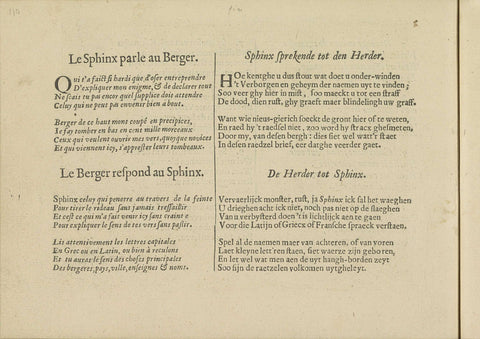 Le Sphinx parle au Berger.
Qui t'a faict si hardi que d'oser entreprendre
D'expliquer mon enigme, & de declarer tout
Ne sçais tu pai encor quel supplice doit attendre
Celuy qui ne peut pas en venir bien à bout.
Berger de ce haut mont coupé en precipices,
Ie fay tomber en bas en cent mille morceaux
Ceux qui veulent ouvrir mes vers, quoyque novices
Et qui viennent icy, s'apprester leurs tombeaux.
Le Berger respond au Sphinx.
Sphinx celuy qui penetre au travers de la feinte
Pour tirer le rideau sans jamais tressaillir
Et est ce qui m'a fait venir icy sans crainte
Pour expliquer le sens de tes vers sans faillir.
Lis attentivement les lettres capitales
En Grec ou en Latin, ou bien à reculons
Et tu auras le sens des choses principales
Des bergeres, pays, ville, enseignes & noms.
Sphinx sprekende tot den Herder.
HOe kentghe u dus stout wat doet u onder-winden
't Verborgen en geheym der naemen uyt te vinden;
Soo veer ghy hier in mist, soo maeckt u tot een straff
De dood, dien rust, ghy graeft maer blindelingh uw graff.
Want wie nieus-gierich soeckt de gront hier of te weten,
En raed hy 't raedsel niet, zoo word hy stracx ghesmeten,
Door my, van desen bergh: dies siet wel watt'r staet
In desen raedzel brief, eer datghe veerder gaet.
De Herder tot Sphinx.
Vervaerlijck monster, rust, ja Sphinx ick sal het waeghen
U drieghen acht ick niet, noch pas niet op de slaeghen
Van u verbysterd doen 't is lichtlijck aen te gaen
Voor die Latijn of Griecx of Fransche spraeck verstaen.
Spel al de naemen maer van achteren, of van voren
Laet kleyne lett'ren staen, siet waerze zijn geboren,
En let wel wat men aen de uyt hangh-borden zeyt
Soo sijn de raetzelen volkomen uytgheleyt.